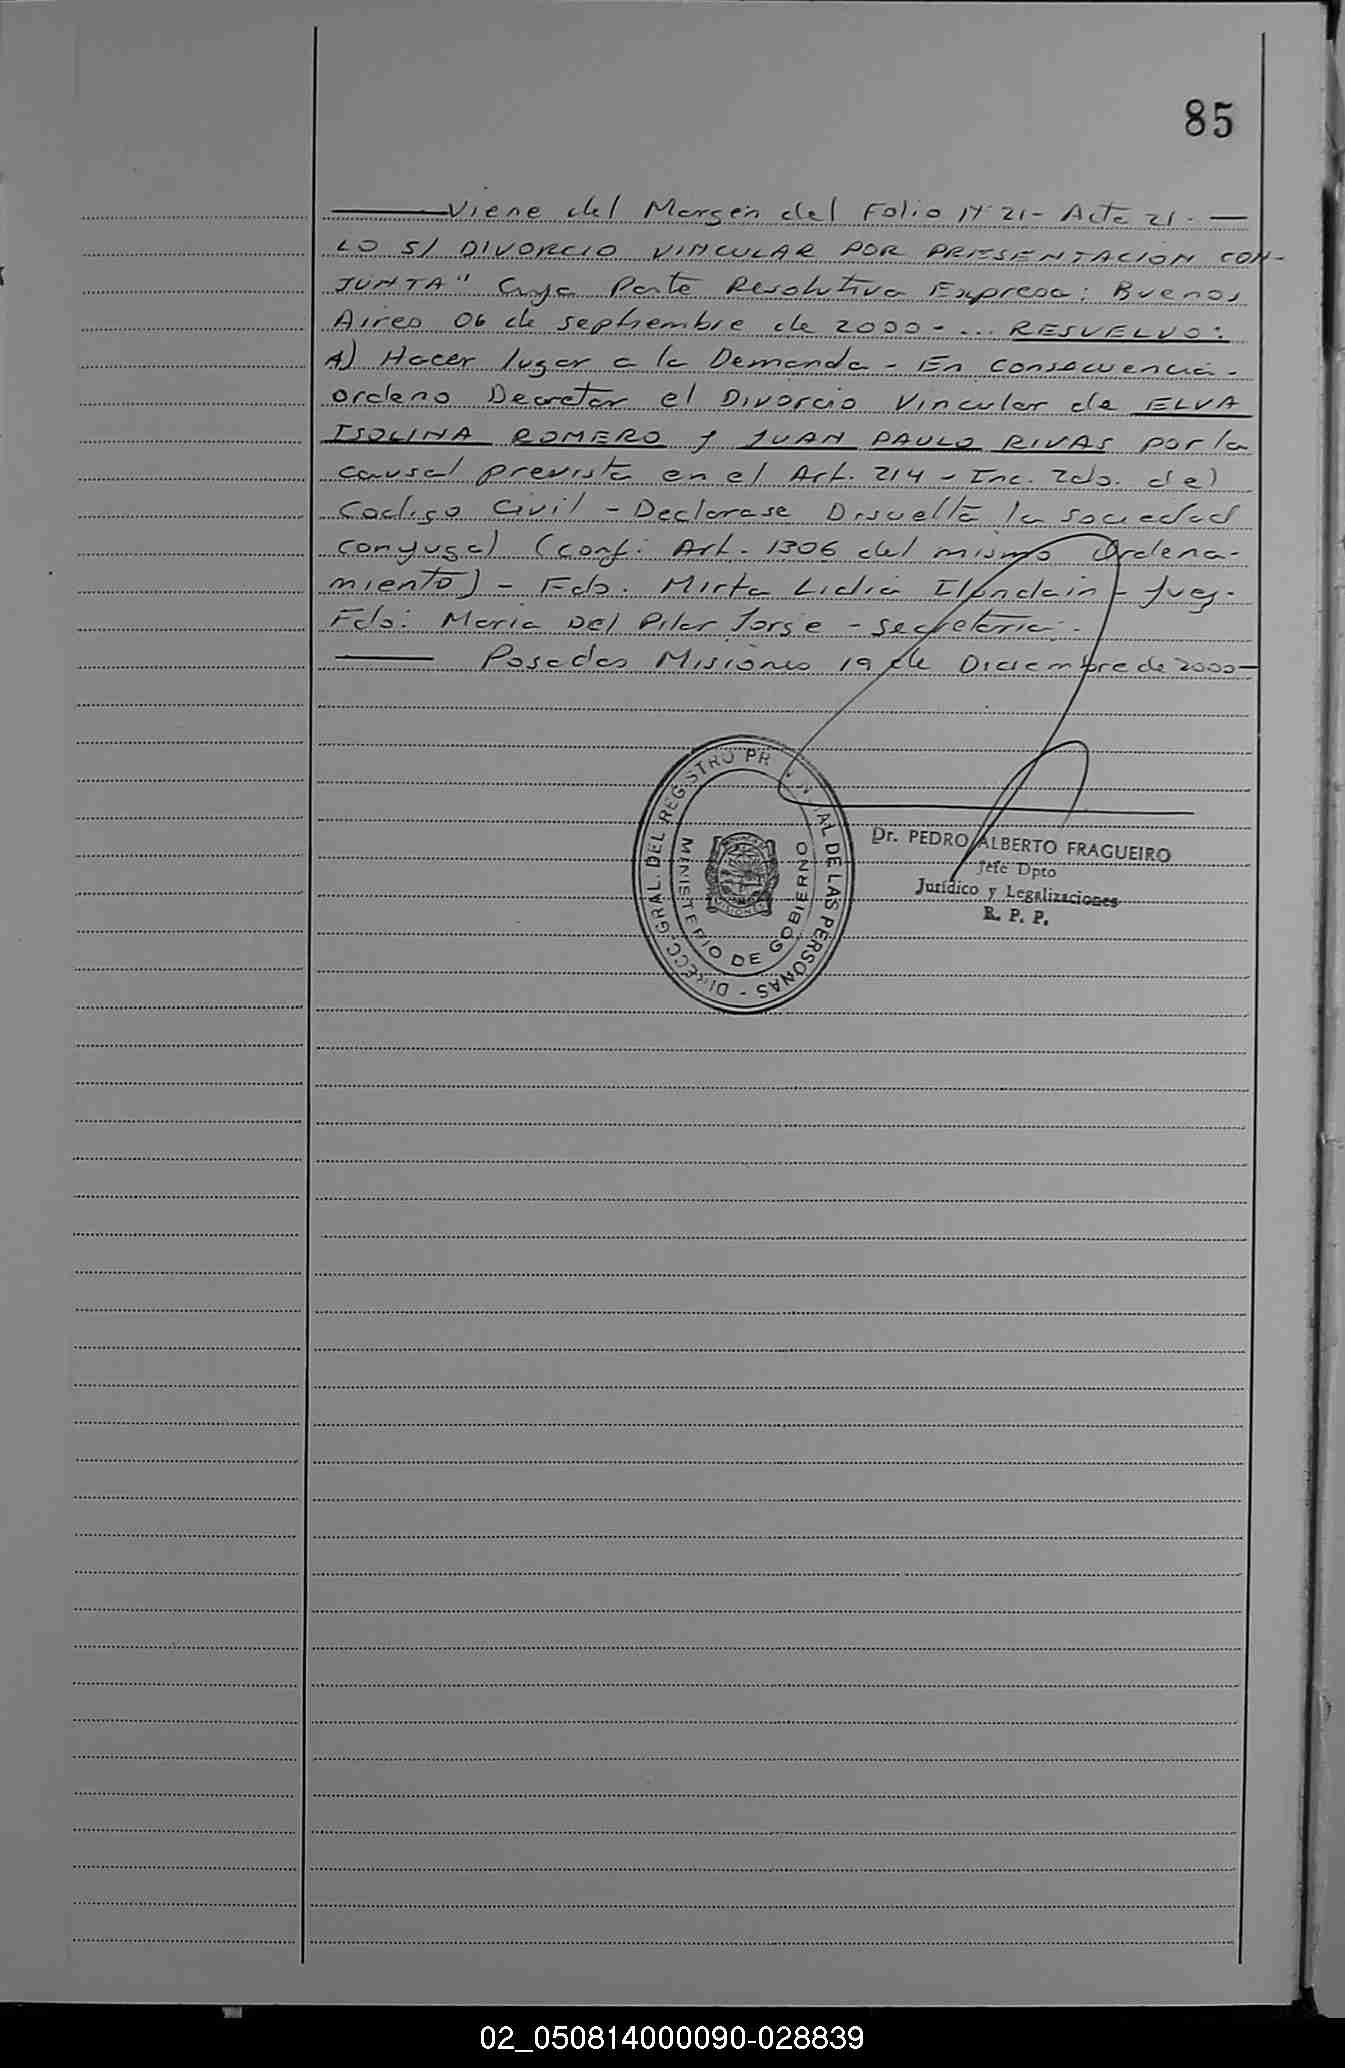 85
Viene del Margen del Folio Nº 21 - Acta 21. -
LO S/ DIVORCIO VINCULAR POR PRESENTACION CON-
JUNTA" Cuya Parte Resolutiva Expresa: Buenos
Aires 06 de septiembre de 2000 - ... RESUELVO:
A) Hacer lugar a la Demanda - En Consecuencia -
ordeno Decretar el Divorcio Vincular de ELVA
ISOLINA ROMERO y JUAN PAULO RIVAS por la
causal prevista en el Art. 214 - Inc. 2do. del
Codigo Civil - Declarase Disuelta la sociedad
conyugal (conf. Art. 1306 del mismo Ordena-
miento) - Fdo. Mirta Lidia Ilundain - Juez.
Fdo: Maria Del Pilar Jorge - secretaria. -
Posadas Misiones 19 de Diciembre de 2000 -
DIRECC. GRAL. DEL REGISTRO PROVINCIAL DE LAS PERSONAS -
MINISTERIO DE GOBIERNO
MISIONES
Dr. PEDRO ALBERTO FRAGUEIRO
Jefe Dpto
Jurídico y Legalizaciones
R. P. P.
02_050814000090-028839